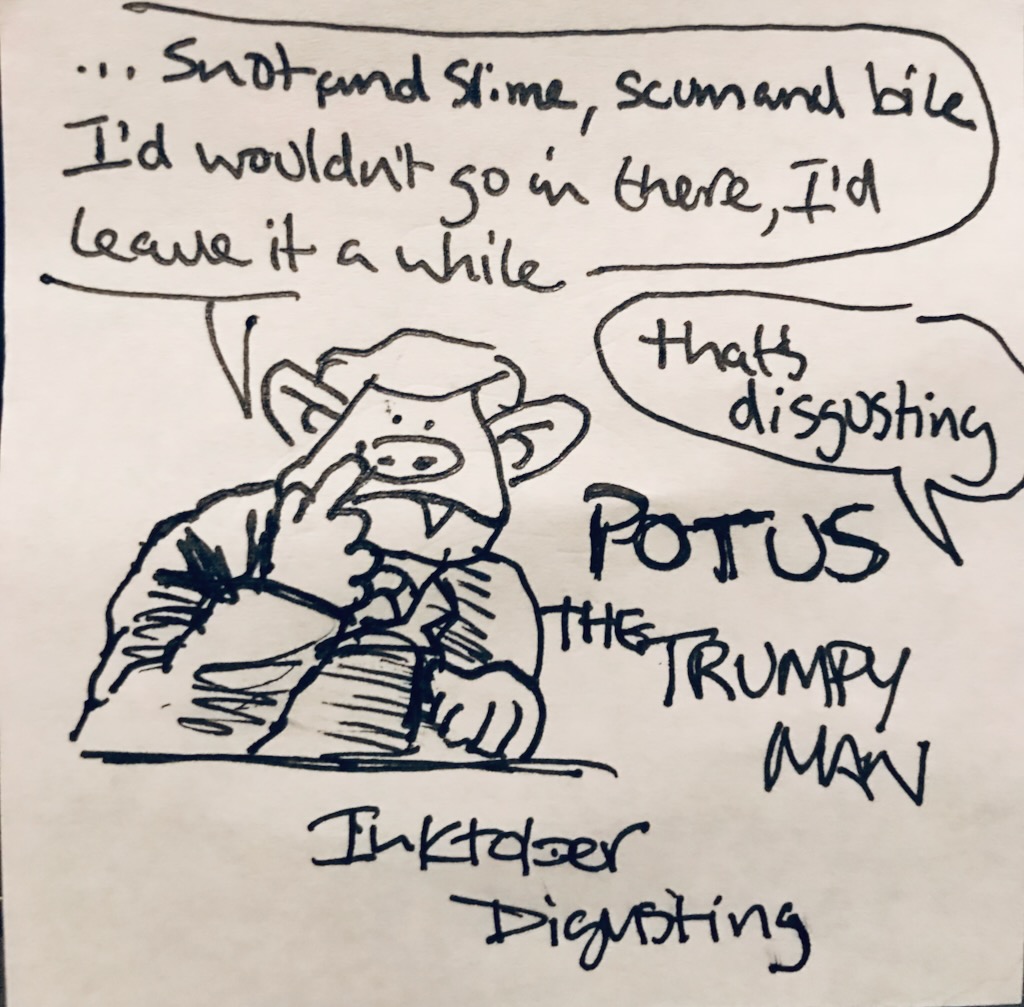 ... Snot and Slime, scum and bile
I'd wouldn't go in there, I'd
leave it a while
that's
disgusting
POTUS
THE TRUMPY
MAN
Inktober
Digusting